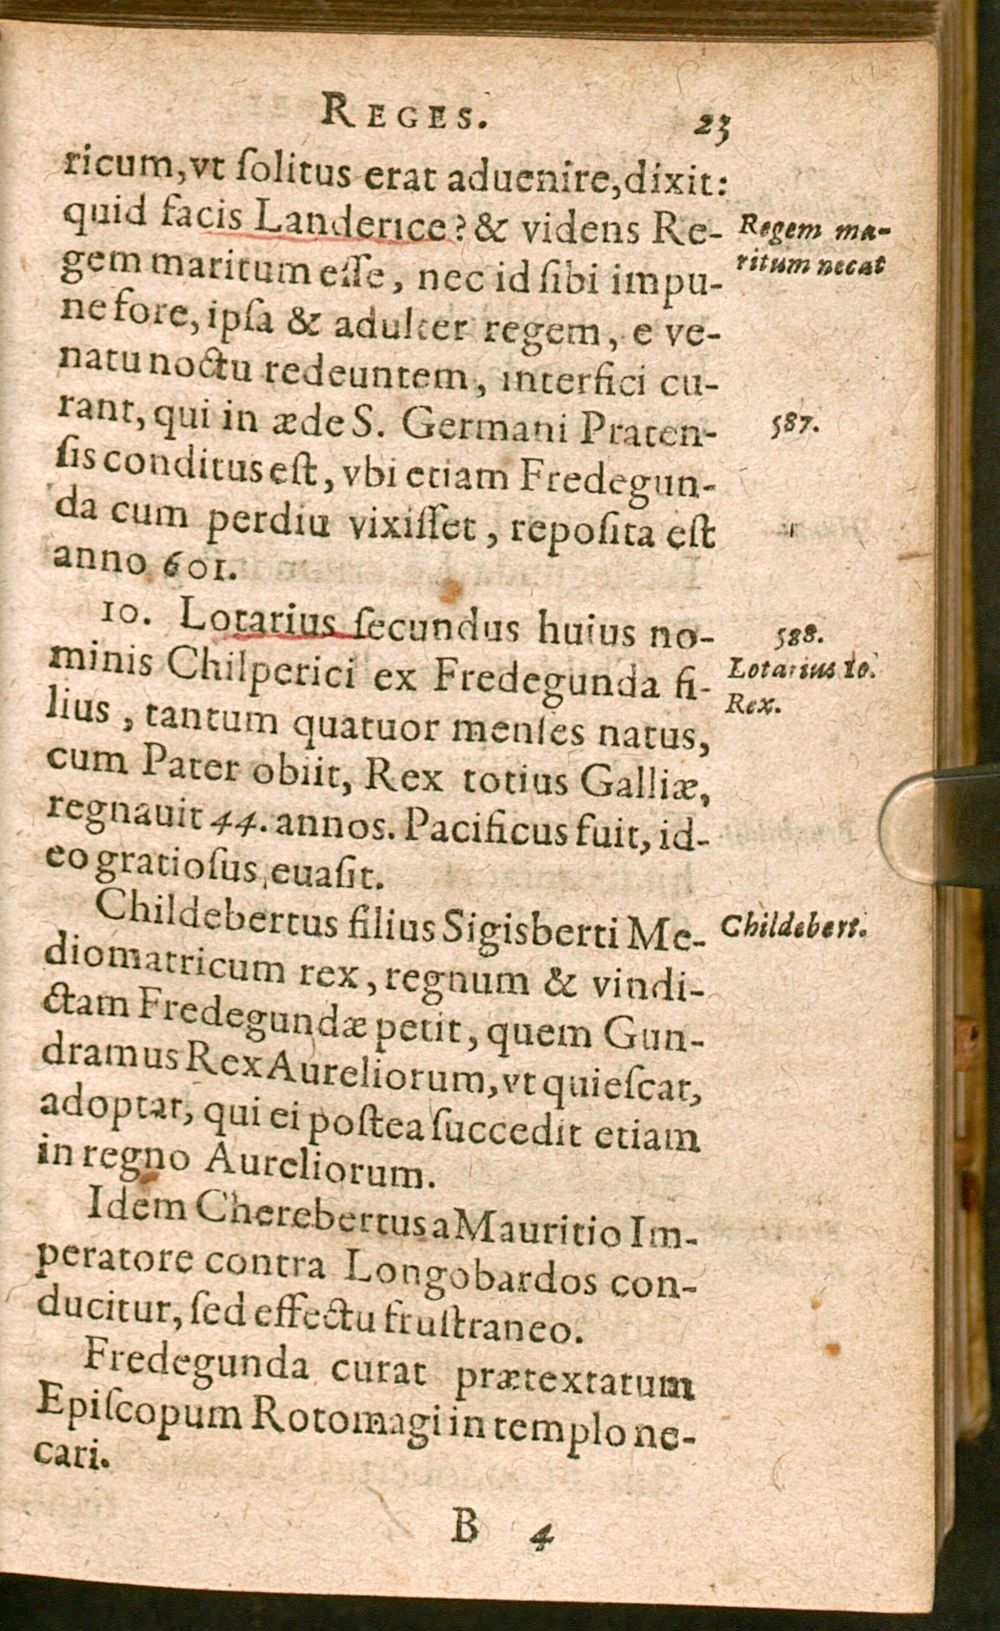 REGES. 23
ricum, vt ſolitus erat aduenire, dixit:
quid facis Landerice? & videns Re-
Regem ma-
gem maritum eſſe, nec id ſibi impu-
ritum necat
ne fore, ipſa & adulter regem, e ve-
natu noctu redeuntem, interfici cu-
rant, qui in æde S. Germani Praten-
587.
ſis conditus eſt, vbi etiam Fredegun-
da cum perdiu vixiſſet, repoſita eſt
anno 601.
10. Lotarius ſecundus huius no-
588.
minis Chilperici ex Fredegunda fi-
Lotarius 10.
lius, tantum quatuor menſes natus,
Rex.
cum Pater obiit, Rex totius Galliæ,
regnauit 44. annos. Pacificus fuit, id-
eo gratioſus euaſit.
Childebertus filius Sigisberti Me-
Childebert.
diomatricum rex, regnum & vindi-
ctam Fredegundæ petit, quem Gun-
dramus Rex Aureliorum, vt quieſcat,
adoptat, qui ei poſtea ſuccedit etiam
in regno Aureliorum.
Idem Cherebertus a Mauritio Im-
peratore contra Longobardos con-
ducitur, ſed effectu fruſtraneo.
Fredegunda curat prætextatum
Epiſcopum Rotomagi in templo ne-
cari.
B 4